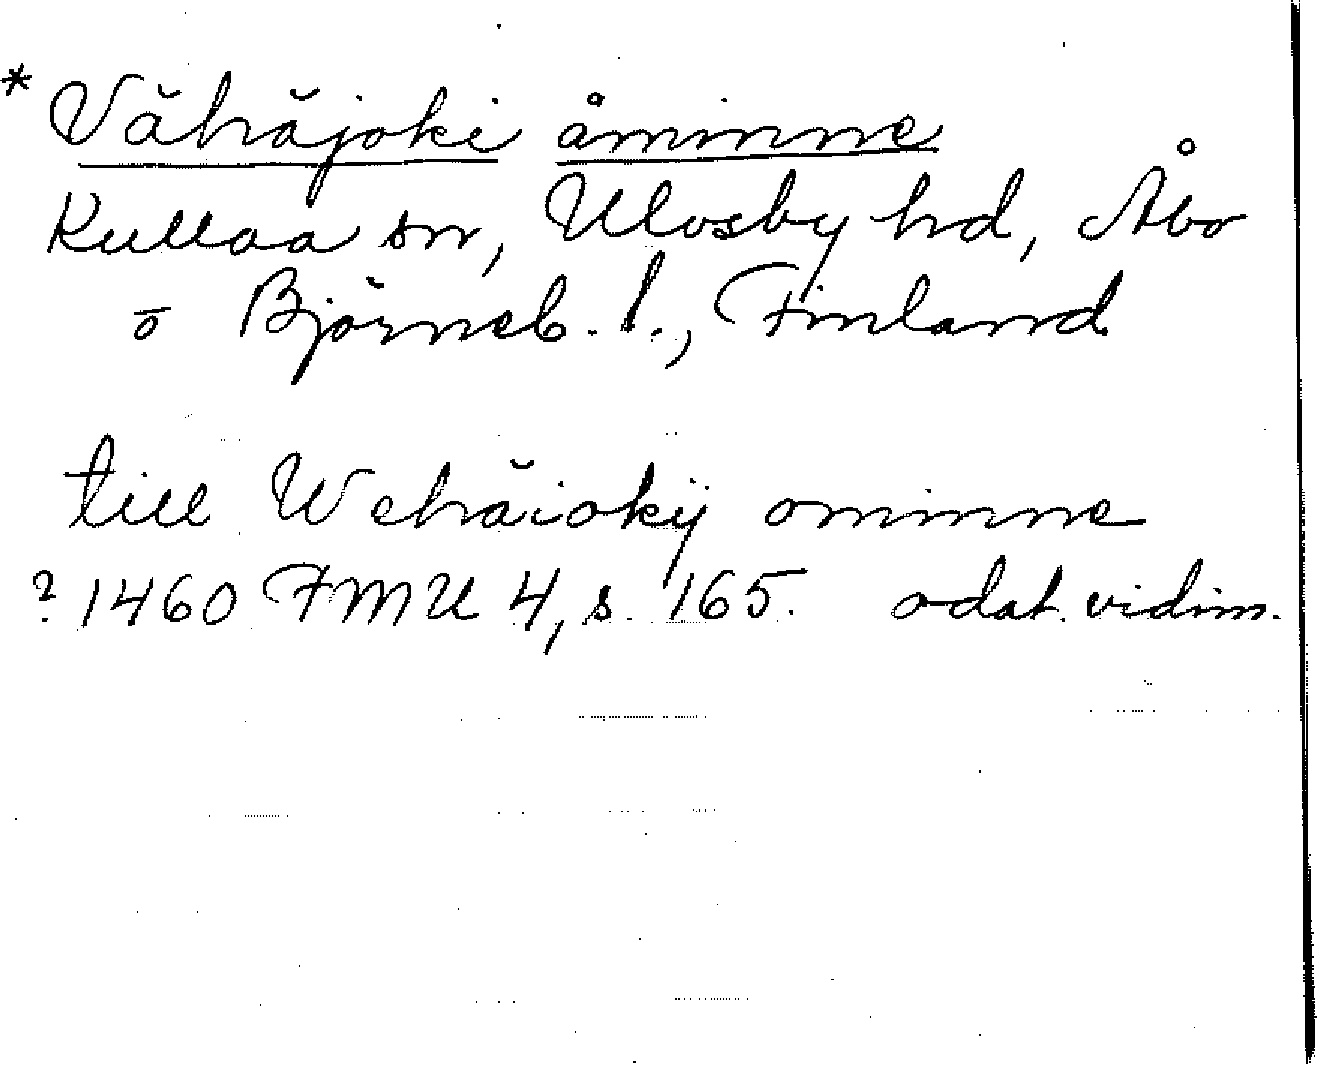 * Vähäjoki åminne
Kullaa sn, Ulvsby hd, Åbo
o Björneb. l., Finland
till Wehäiokij ominne
? 1460 FMU 4, s. 165. odat. vidim.